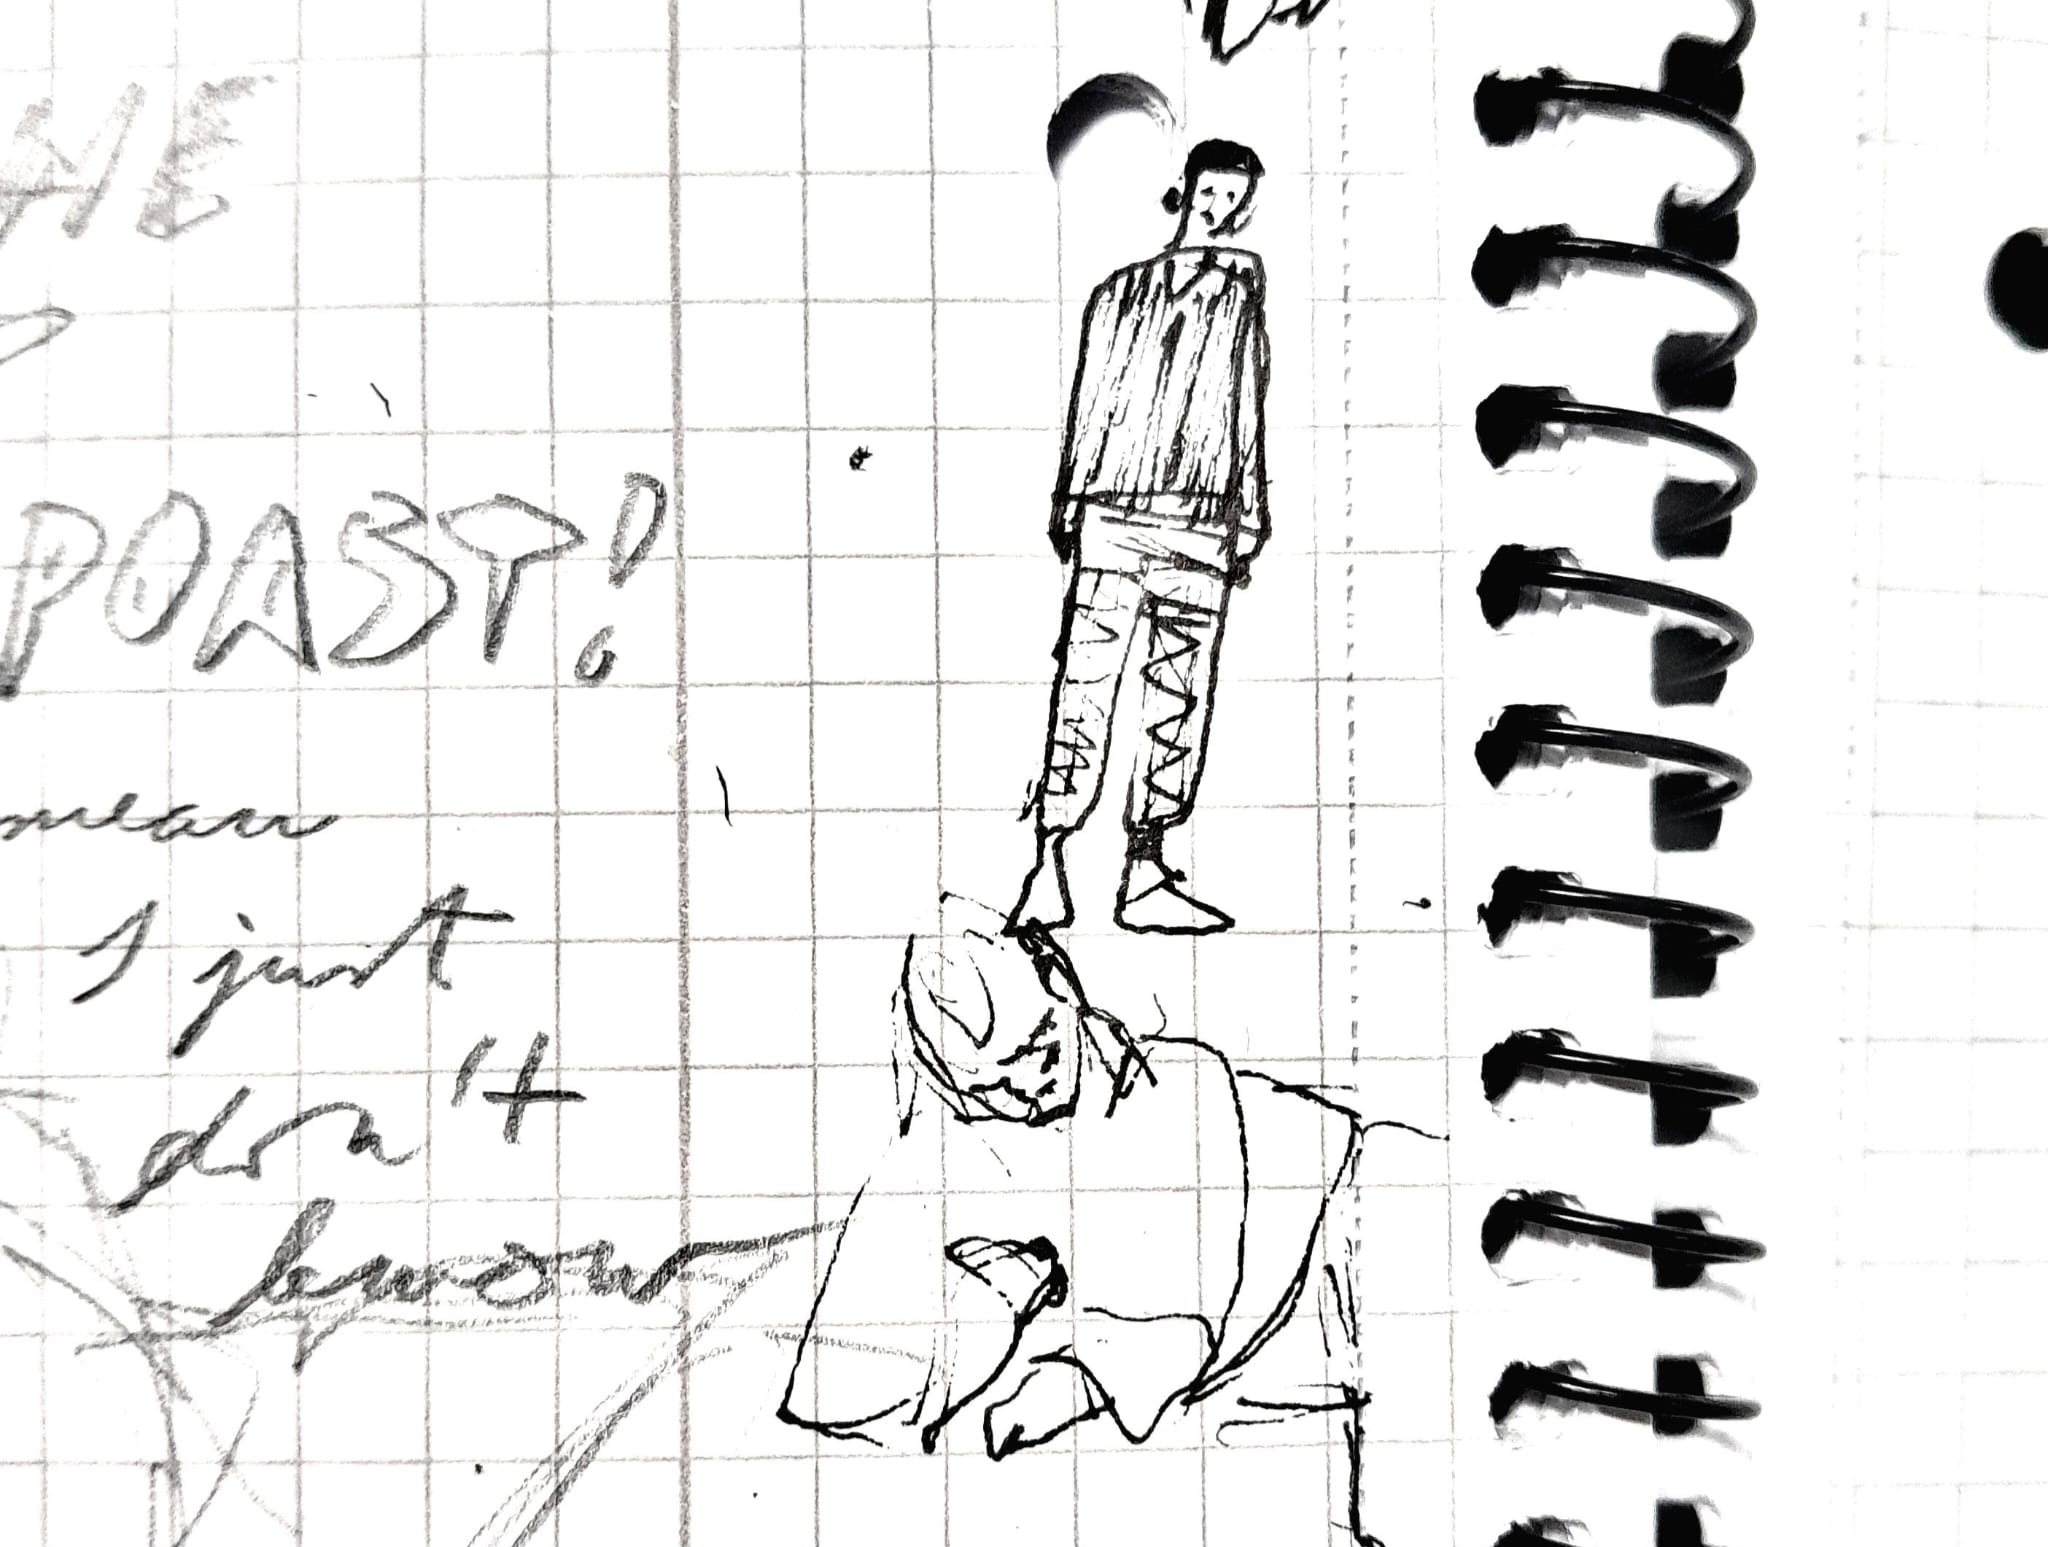 HE
POAST!
mean
I just
don't
know